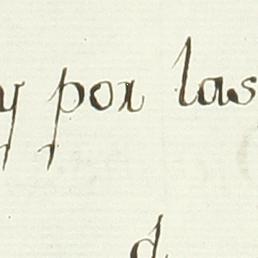 y por las
d